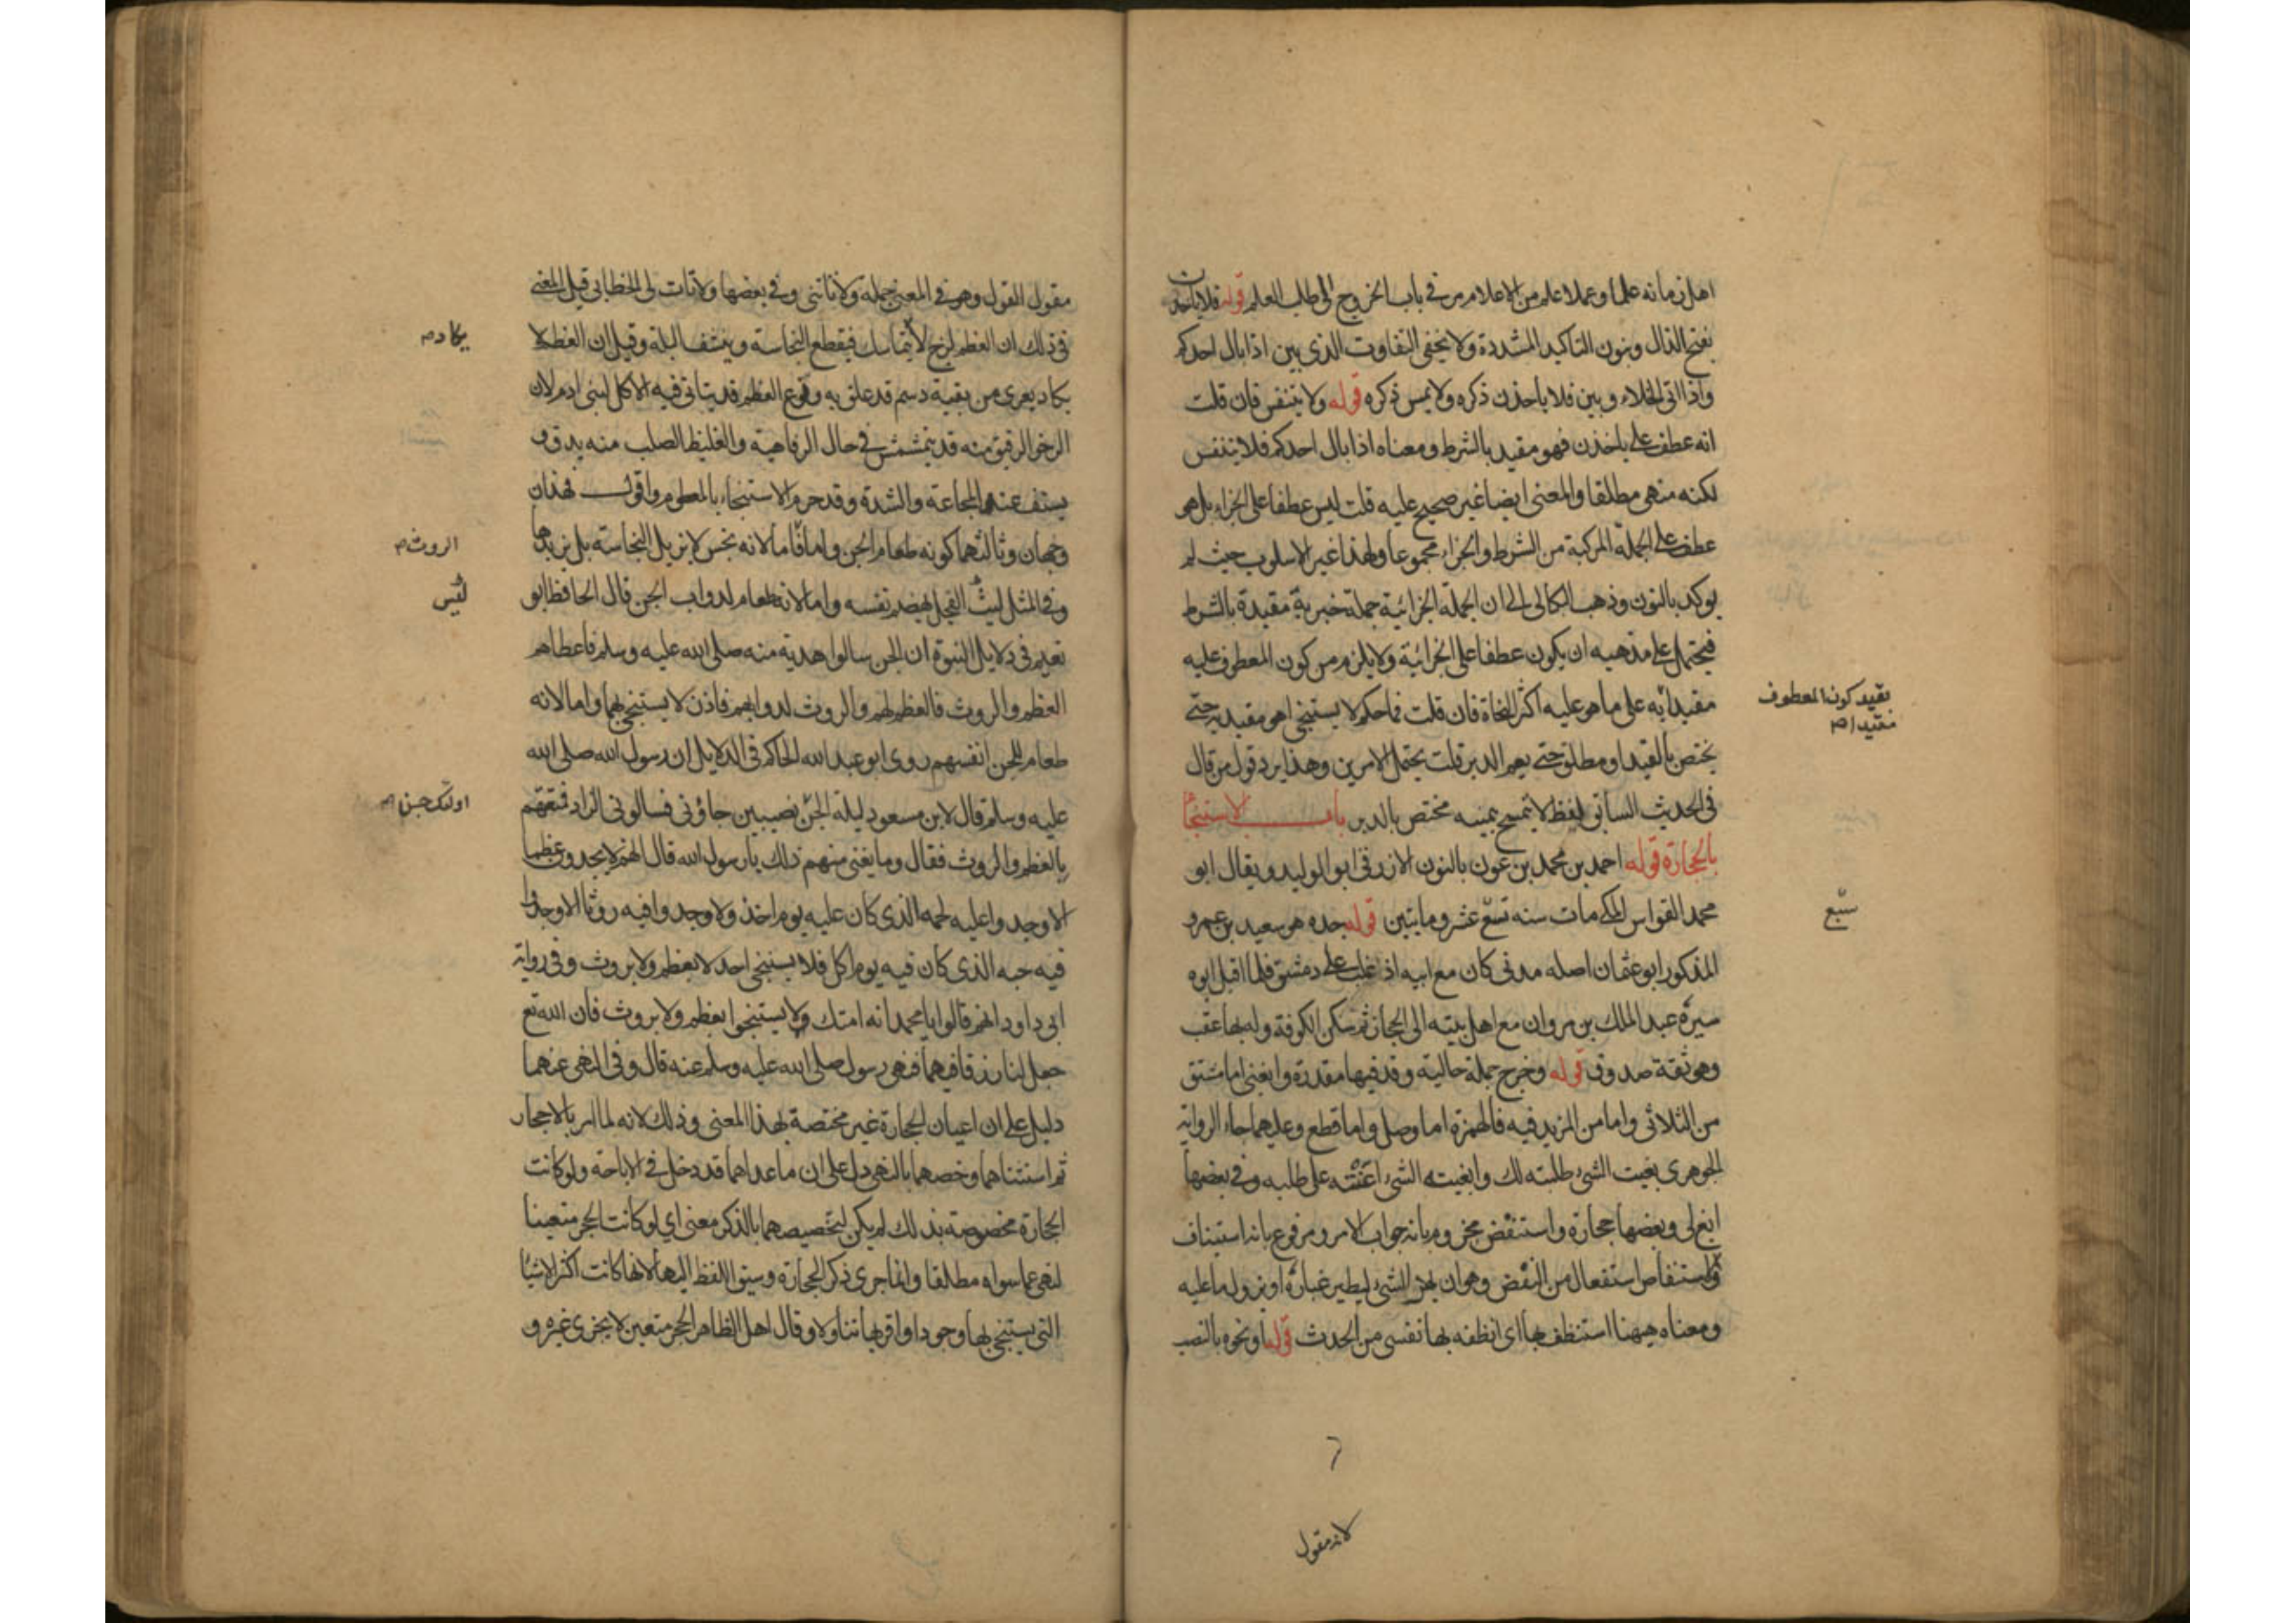 اهل زمانه علما وعملا علم من الاعلام مر في باب الخروج الى طلب العلم قوله فلا ياخذن
بفتح الذال وبنون التاكيد المشددة ولا يخفى التفاوت الذي بين اذا بال احدكم
واذا اتى الخلاء وبين فلا ياخذن ذكره ولا يمس ذكره قوله ولا يتنفس فان قلت
انه عطف على ياخذن فهو مقيد بالشرط ومعناه اذا بال احدكم فلا يتنفس
لكنه منهي مطلقا والمعنى ايضا غير صحيح عليه قلت ليس عطفا على الجزاء بل هو
عطف على الجملة المركبة من الشرط والجزاء مجموعا ولهذا غير الاسلوب حيث لم
يوكد بالنون وذهب السكاكي الى ان الجملة الجزائية جملة خبرية مقيدة بالشرط
فيحتمل على مذهبه ان يكون عطفا على الجزائية ولا يلزم من كون المعطوف عليه
مقيدا به على ما هو عليه اكثر النحاة فان قلت فما حكم لا يستنجي اهو مقيد به حتى
يختص بالقيد او مطلق حتى يعم الدبر قلت يحتمل الامرين وهذا يرد قول من قال
في الحديث السابق لفظ لا يتمسح بيمينه مختص بالدبر باب الاستنجا
بالحجارة قوله احمد بن محمد بن عون بالنون الازرقي ابو الوليد ويقال ابو
محمد القواس المكي مات سنه تسع عشر ومايتين قوله جده هو سعيد بن عمرو
المذكور ابو عثمان اصله مدني كان مع ابيه اذ غلب على دمشق فلما اقبل ابوه
سيره عبد الملك بن مروان مع اهل بيته الى الحجاز ثم سكن الكوفة وله بها عقب
وهو ثقة صدوق قوله وخرج جملة حالية وقد فيها مقدرة وابغني اما مشتق
من الثلاثي واما من المزيد فيه فالهمزة اما وصل واما قطع وعليهما جاء الرواية
الجوهري بغيت الشيء طلبته لك وابغيته الشيء اعنته على طلبه وفي بعضها
ابغ لي وبعضها حجارة واستنفض مجزوم بانه جواب الامر ومرفوع بانه استيناف
والاستنفاض استفعال من النفض وهو ان يهز الشيء ليطير غباره او يزول ما عليه
ومعناه ههنا استنظف بها اي انظف بها نفسي من الحدث قوله او نحوه بالنصب
بقيد كون المعطوف
مقيدا صح
سبع
لانه مقول
مقول القول وهو في المعنى جملة ولا تاتني وفي بعضها ولا تات لي الخطابي قيل المعنى
في ذلك ان العظم لزج لا يتماسك فيقطع النجاسة وينشف البلة وقيل ان العظم لا
يكاد يعرى من بقية دسم قد علق به ونوع العظم قد يتاتى فيه الاكل لبني ادم لان
الرخو الرقيق منه قد يتمشمش في حال الرفاهية والغليظ الصلب منه يدق و
يستف عند المجاعة والشدة وقد حرم الاستنجاء بالمطعوم واقول فهذان
وجهان وثالثهما كونه طعام الجن واما لانه نجس لا يزيل النجاسة بل يزيدها
وفي المثل ليت الفجل يهضم نفسه واما لانه طعام لدواب الجن قال الحافظ ابو
نعيم في دلايل النبوة ان الجن سالوا هدية منه صلى الله عليه وسلم فاعطاهم
العظم والروث فالعظم لهم والروث لدوابهم فاذن لا يستنجي بهما واما لانه
طعام للجن انفسهم روى ابو عبد الله الحاكم في الدلايل ان رسول الله صلى الله
عليه وسلم قال لابن مسعود ليلة الجن نصيبين جاؤني فسالوني الزاد فمتعتهم
بالعظم والروث فقال وما يغني منهم ذلك يا رسول الله قال انهم لا يجدون عظما
الا وجدوا عليه لحمه الذي كان عليه يوم اخذ ولا وجدوا فيه روثا الا وجدوا
فيه حبه الذي كان فيه يوم اكل فلا يستنجي احد لا بعظم ولا بروث وفي رواية
ابي داود انهم قالوا يا محمد انه امتك ولا يستنجوا بعظم ولا بروث فان الله تع
جعل لنا رزقا فيهما فنهى رسول صلى الله عليه وسلم عنه قال وفي النهي عنهما
دليل على ان اعيان الحجارة غير مختصة بهذا المعنى وذلك لانه لما امر بالاحجار
ثم استثناهما وخصهما بالنهي دل على ان ما عداهما قد دخل في الاباحة ولو كانت
الحجارة مخصوصة بذلك لم يكن لتخصيصهما بالذكر معنى اي لو كانت الحجر متعينا
لنهى عما سواه مطلقا وانما جرى ذكر الحجارة وسبق اللفظ اليها لانها كانت اكثر الاشيا
التي يستنجى بها وجودا واقربها تناولا وقال اهل الظاهر الحجر متعين لا يجزي غيره و
يكاد صح
الروث صح
ليس
اولئك جن صح